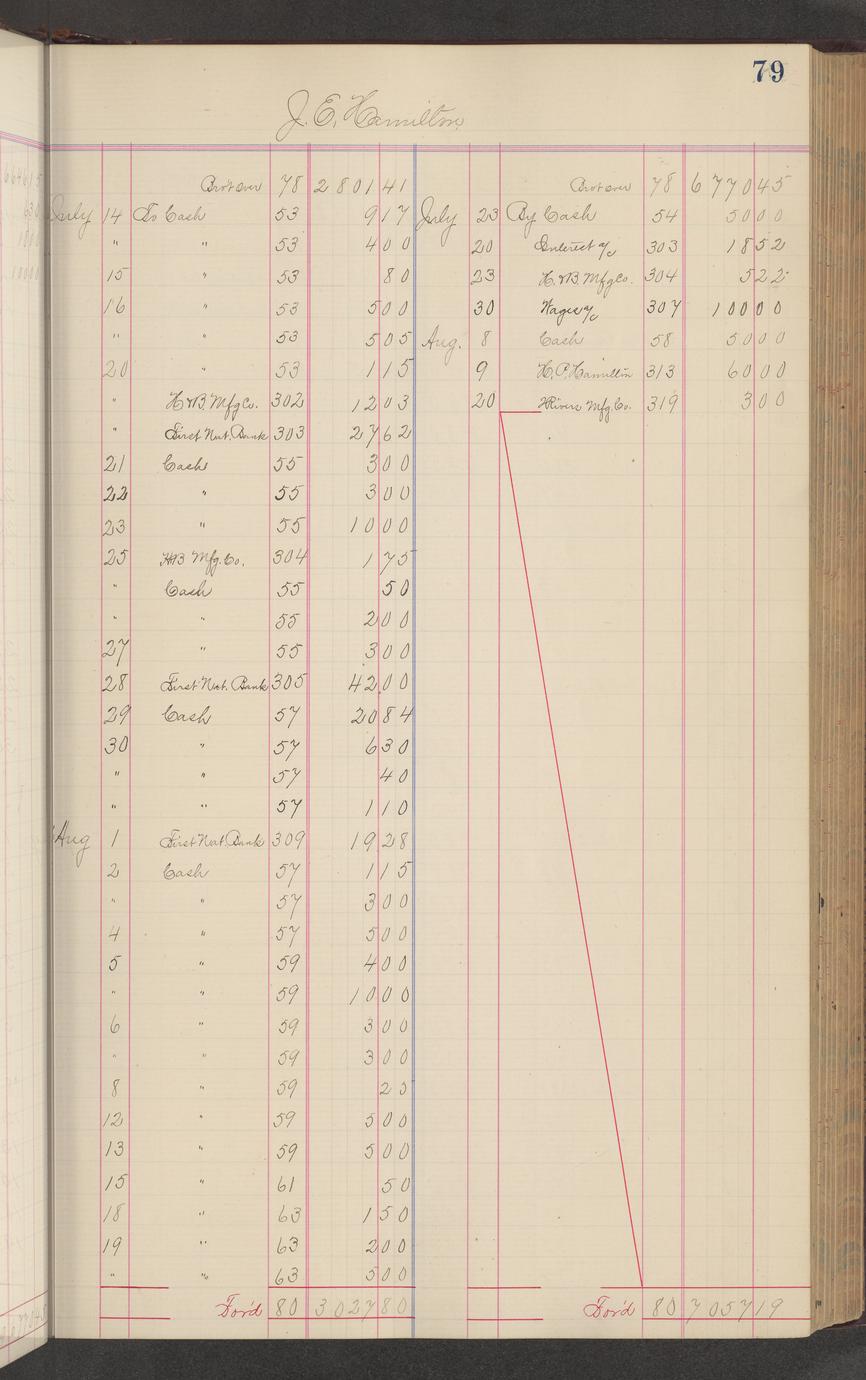 79
J. E. Hamilton
Brot over 78 2801 41
July 14 To Cash 53 9 17
" " 53 4 00
15 " 53 80
16 " 53 5 00
" " 53 5 05
20 " 53 1 15
" H & B. Mfg Co. 302 12 03
" First Nat. Bank 303 27 62
21 Cash 55 3 00
22 " 55 3 00
23 " 55 10 00
25 H&B Mfg. Co. 304 1 75
" Cash 55 50
" " 55 2 00
27 " 55 3 00
28 First Nat. Bank 305 42 00
29 Cash 57 20 84
30 " 57 6 30
" " 57 40
" " 57 1 10
Aug 1 First Nat. Bank 309 19 28
2 Cash 57 1 15
" " 57 3 00
4 " 57 5 00
5 " 59 4 00
" " 59 10 00
6 " 59 3 00
" " 59 3 00
8 " 59 25
12 " 59 5 00
13 " 59 5 00
15 " 61 50
18 " 63 1 50
19 " 63 2 00
" " 63 5 00
For'd 80 3027 80
Brot over 78 6770 45
July 23 By Cash 54 50 00
20 Interest a/c 303 18 52
23 H. & B. Mfg Co. 304 5 22
30 Wages a/c 307 100 00
Aug. 8 Cash 58 50 00
9 H. P. Hamilton 313 60 00
20 Rivers Mfg. Co. 319 3 00
For'd 80 7057 19